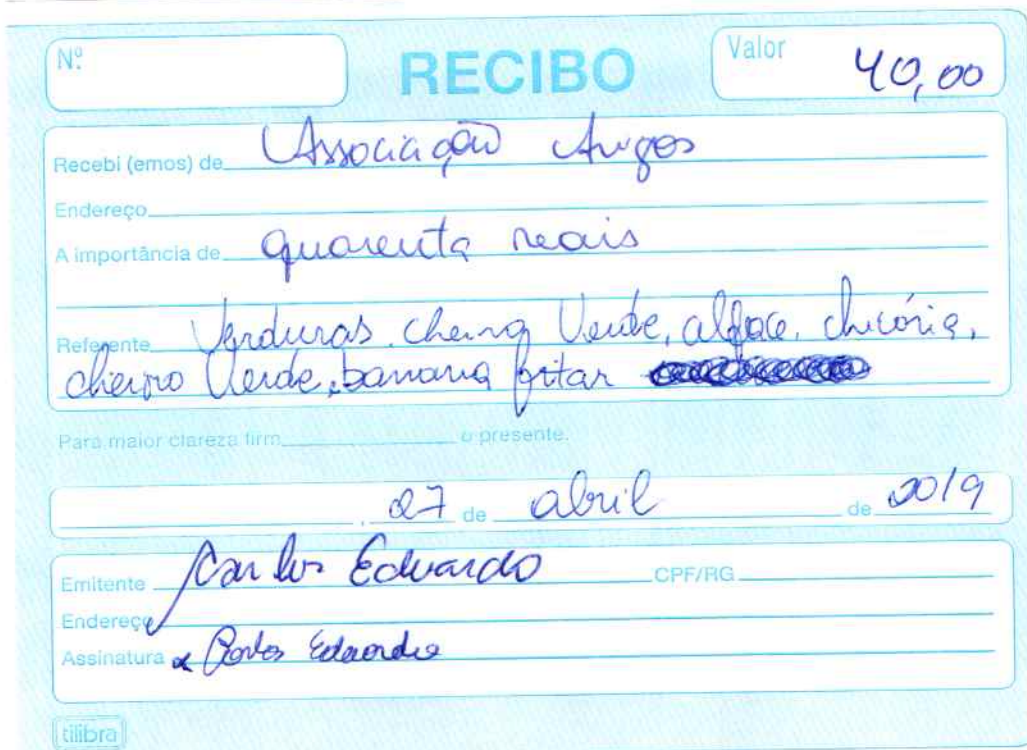 Nº RECIBO Valor 40,00
Recebi (emos) de Associação Amigos
Endereço
A importância de quarenta reais
Referente Verduras, cheiro Verde, alface, chicória,
cheiro Verde, banana fritar
Para maior clareza firm o presente.
, 27 de abril de 2019
Emitente Carlos Eduardo CPF/RG
Endereço
Assinatura x Carlos Eduardo
tilibra